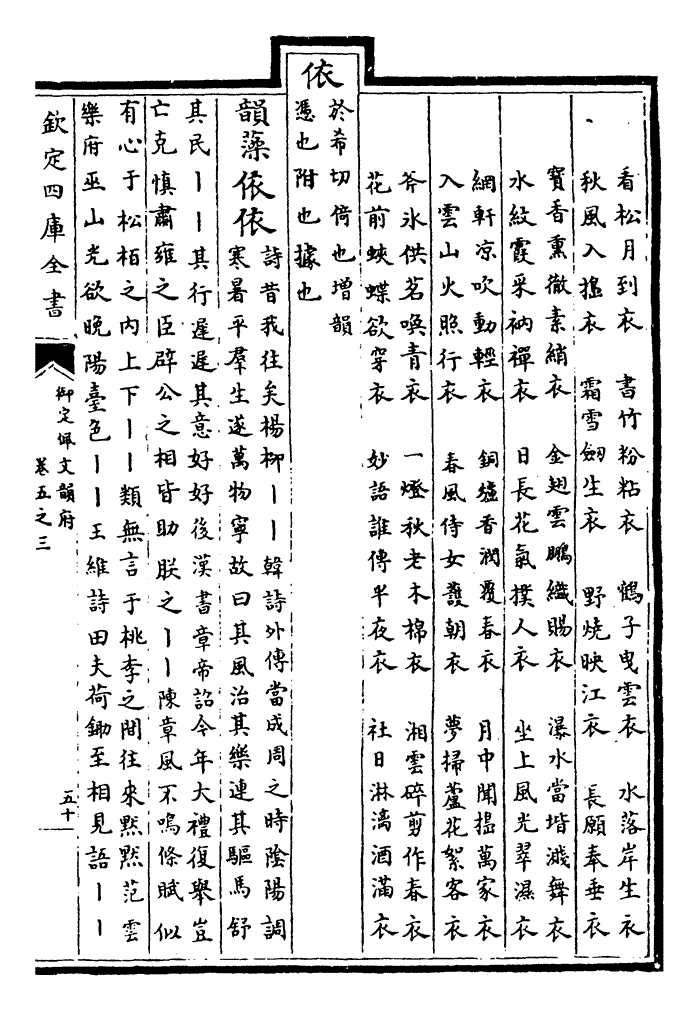 看松月到衣　書竹粉粘衣　鶴子曳雲衣　水落岸生衣
秋風入搗衣　霜雪劒生衣　野燒映江衣　長願奉垂衣
寶香熏徹素綃衣　金翅雲鵬織賜衣　瀑水當堦濺舞衣
水紋霞采衲禪衣　日長花氣撲人衣　坐上風光翠濕衣
網軒凉吹動輕衣　銅爐香潤覆春衣　月中聞搗萬家衣
入雲山火照行衣　春風侍女護朝衣　夢掃蘆花絮客衣
斧氷供茗喚青衣　一燈秋老木棉衣　湘雲碎剪作春衣
花前蛺蝶欲穿衣　妙語誰傳半夜衣　社日淋漓酒滿衣
依
於希切倚也增韻
憑也附也據也
韻藻依依
詩昔我往矣楊柳丨丨韓詩外傳當成周之時陰陽調
寒暑平羣生遂萬物寧故曰其風治其樂連其驅馬舒
其民丨丨其行遲遲其意好好後漢書章帝詔今年大禮復舉豈
亡克慎肅雍之臣辟公之相皆助朕之丨丨陳章風不鳴條賦似
有心于松栢之内上下丨丨類無言于桃李之間往來黙黙范雲
樂府巫山光欲晚陽臺色丨丨王維詩田夫荷鋤至相見語丨丨
欽定四庫全書
御定佩文韻府
卷五之三
五十